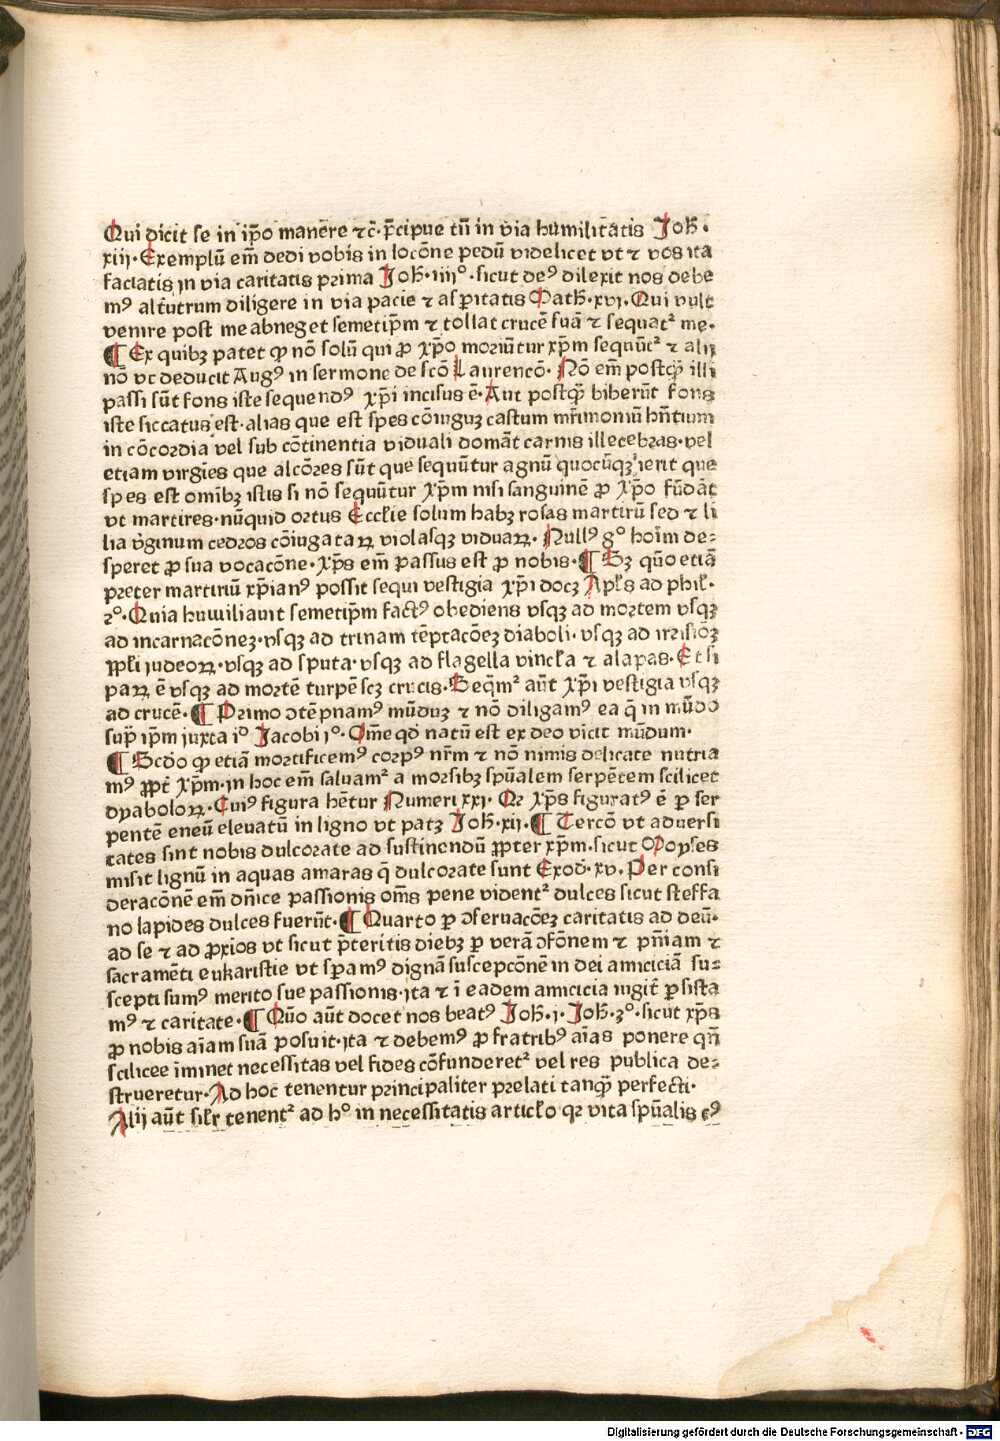 Qui dicit se in ip̄o manēre ⁊c̄· p̄cipue tn̄ in via humilitatis Joh̄·
xiij· Exemplū em̄ dedi vobis in locōne pedū videlicet vt ⁊ vos ita
faciatis in via caritatis prima Joh̄·iiijº·sicut deꝰ dilexit nos debe
mꝰ alt̄utrum diligere in via pacie ⁊ asp̄itatis Math̄·xvj·Qui vult
venire post me abneget semetip̄m ⁊ tollat crucē suā ⁊ sequat᷑ me·
¶ Ex quibꝫ patet ꝙ nō solū qui ꝓ xp̄o moriūtur xp̄m sequūt᷑ ⁊ alij
nō vt deducit Augꝰ in sermone de scō Laurencō· Nō em̄ postꝙ̄ illi
passi sūt fons iste sequendꝰ xp̄i incisus ē·Aut postꝙ̄ biberūt fons
iste siccatus est·alias que est spes cōiuguꝫ castum mr̄imoniū hn̄tium
in cōcordia vel sub cōtinentia viduali domāt carnis illecebras·vel
etiam virgīes que alcōres sūt que sequūtur agnū quocūqꝫ ierit que
spes est omībꝫ istis si nō sequūtur xp̄m nisi sanguinē ꝓ xp̄o fūdāt
vt martires·nūquid ortus Eccłie solum habꝫ rosas martirū sed ⁊ li
lia v̄ginum cedros cōiugataꝝ violasqꝫ viduaꝝ· Nullꝰ gº hoīm de⸗
speret ꝓ sua vocacōne·xp̄s em̄ passus est ꝓ nobis·¶ Sꝫ quō etiā
preter martiriū xp̄ianꝰ possit sequi vestigia xp̄i docꝫ Apl̄s ad phil̄·
2º·Quia huwiliauit semetip̄m factꝰ obediens vsqꝫ ad mortem vsqꝫ
ad incarnacōneꝫ·vsqꝫ ad trinam tēptacōeꝫ diaboli·vsqꝫ ad irrisiōꝫ
ppl̄i iudeoꝝ·vsqꝫ ad sputa·vsqꝫ ad flagella vincła ⁊ alapas·Et si
paꝝ ē vsqꝫ ad mortē turpē scꝫ crucis·Seqm̄᷑ aūt xp̄i vestigia vsqꝫ
ad crucē·¶ Primo ↄtēpnamꝰ mūduꝫ ⁊ nō diligamꝰ ea q̄ in mūdo
sup̄ ip̄m iuxta iº Jacobi iº·Om̄e qd̄ natū est ex deo vīcit mūdum·
¶ Scdō ꝙ etiā mortificemꝰ corpꝰ nr̄m ⁊ nō nimis delicate nutria
mꝰ ꝓpt̄ xp̄m·in hoc em̄ saluam᷑ a morsibꝫ spūalem serpētem scilicet
dyaboloꝝ·Cuiꝰ figura hētur Numeri xxj· Qr xp̄s figuratꝰ ē ꝑ ser
pentē eneū eleuatū in ligno vt patꝫ Joh̄·xij·¶ Tercō vt aduersi
tates sint nobis dulcorate ad sustinendū ꝓpter xp̄m·sicut Moyses
misit lignū in aquas amaras q̄ dulcorate sunt Exod̄·xv·Per consi
deracōnē em̄ dn̄ice passionis om̄s pene vident᷑ dulces sicut steffa
no lapides dulces fuerūt·¶ Quarto ꝑ ↄseruacōeꝫ caritatis ad deū·
ad se ⁊ ad ꝓxīos vt sicut p̄teritis diebꝫ ꝑ verā ↄfōnem ⁊ pn̄iam ⁊
sacramēti eukaristie vt sp̄amꝰ dignā suscepcōnē in dei amiciciā su⸗
scepti sumꝰ merito sue passionis·ita ⁊ ī eadem amicicia iugit̄ ꝑsista
mꝰ ⁊ caritate·¶ Quō aūt docet nos beatꝰ Joh̄·j·Joh̄·3º·sicut xp̄s
ꝓ nobis aīam suā posuit·ita ⁊ debemꝰ ꝓ fratribꝰ aīas ponere qn̄
scilicee īminet necessitas vel fides cōfunderet᷑ vel res publica de⸗
strueretur·Ad hoc tenentur principaliter prelati tanꝙ̄ perfecti·
Alij aūt silr̄ tenent᷑ ad hº in necessitatis articło qr vita spūalis eꝰ
Digitalisierung gefördert durch die Deutsche Forschungsgemeinschaft - DFG